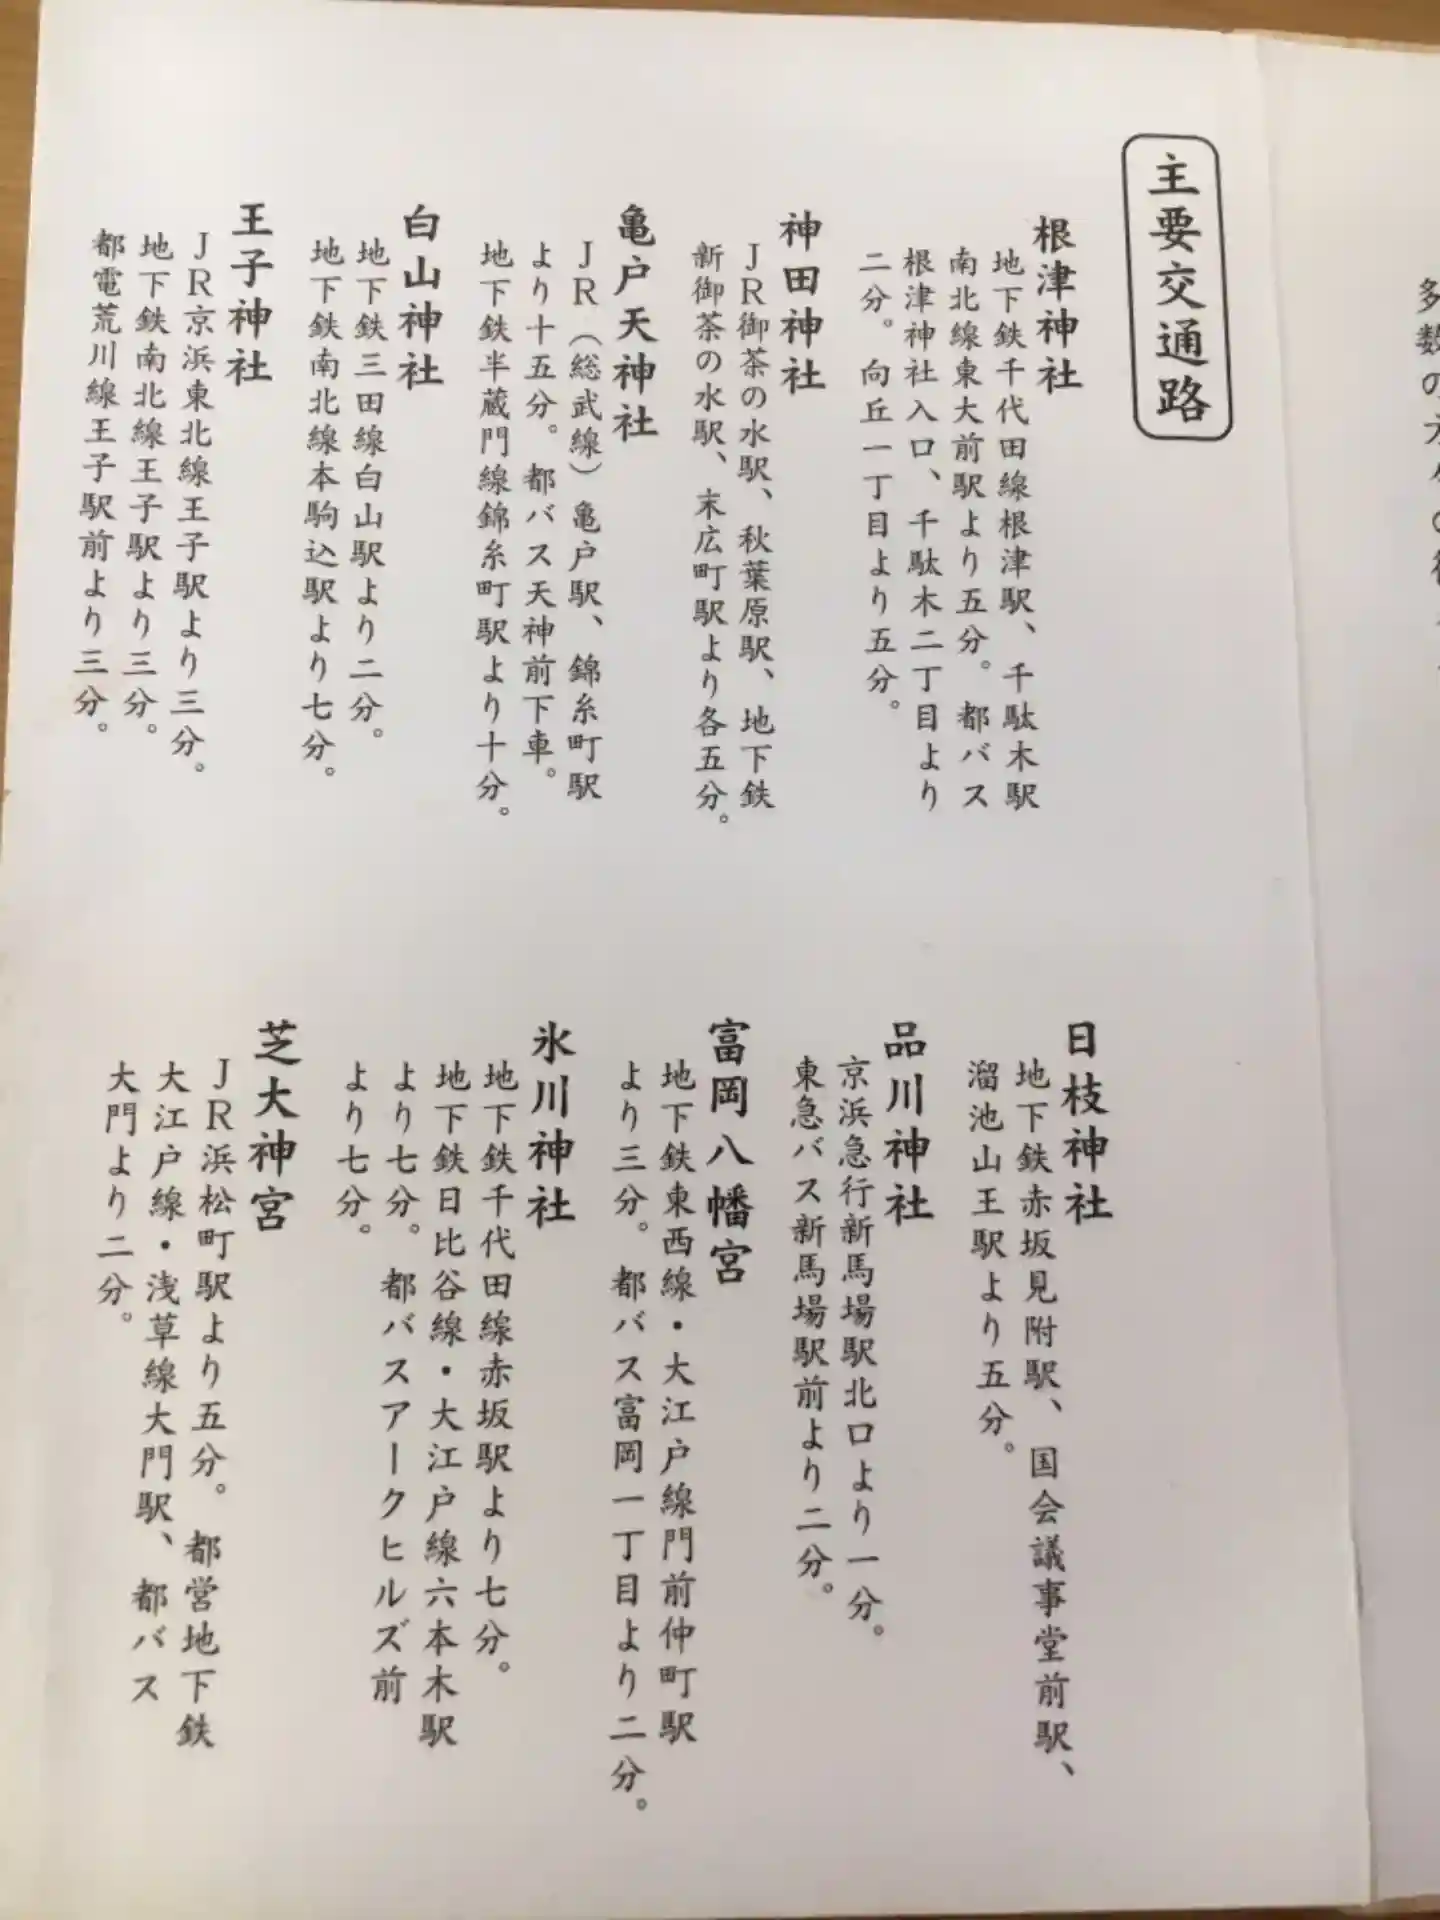 主要交通路
根津神社
地下鉄千代田線根津駅、千駄木駅
南北線東大前駅より五分。都バス
根津神社入口、千駄木二丁目より
二分。向丘一丁目より五分。
神田神社
ＪＲ御茶の水駅、秋葉原駅、地下鉄
新御茶の水駅、末広町駅より各五分。
亀戸天神社
ＪＲ（総武線）亀戸駅、錦糸町駅
より十五分。都バス天神前下車。
地下鉄半蔵門線錦糸町駅より十分。
白山神社
地下鉄三田線白山駅より二分。
地下鉄南北線本駒込駅より七分。
王子神社
ＪＲ京浜東北線王子駅より三分。
地下鉄南北線王子駅より三分。
都電荒川線王子駅前より三分。
日枝神社
地下鉄赤坂見附駅、国会議事堂前駅、
溜池山王駅より五分。
品川神社
京浜急行新馬場駅北口より一分。
東急バス新馬場駅前より二分。
富岡八幡宮
地下鉄東西線・大江戸線門前仲町駅
より三分。都バス富岡一丁目より二分。
氷川神社
地下鉄千代田線赤坂駅より七分。
地下鉄日比谷線・大江戸線六本木駅
より七分。都バスアークヒルズ前
より七分。
芝大神宮
ＪＲ浜松町駅より五分。都営地下鉄
大江戸線・浅草線大門駅、都バス
大門より二分。
多数の